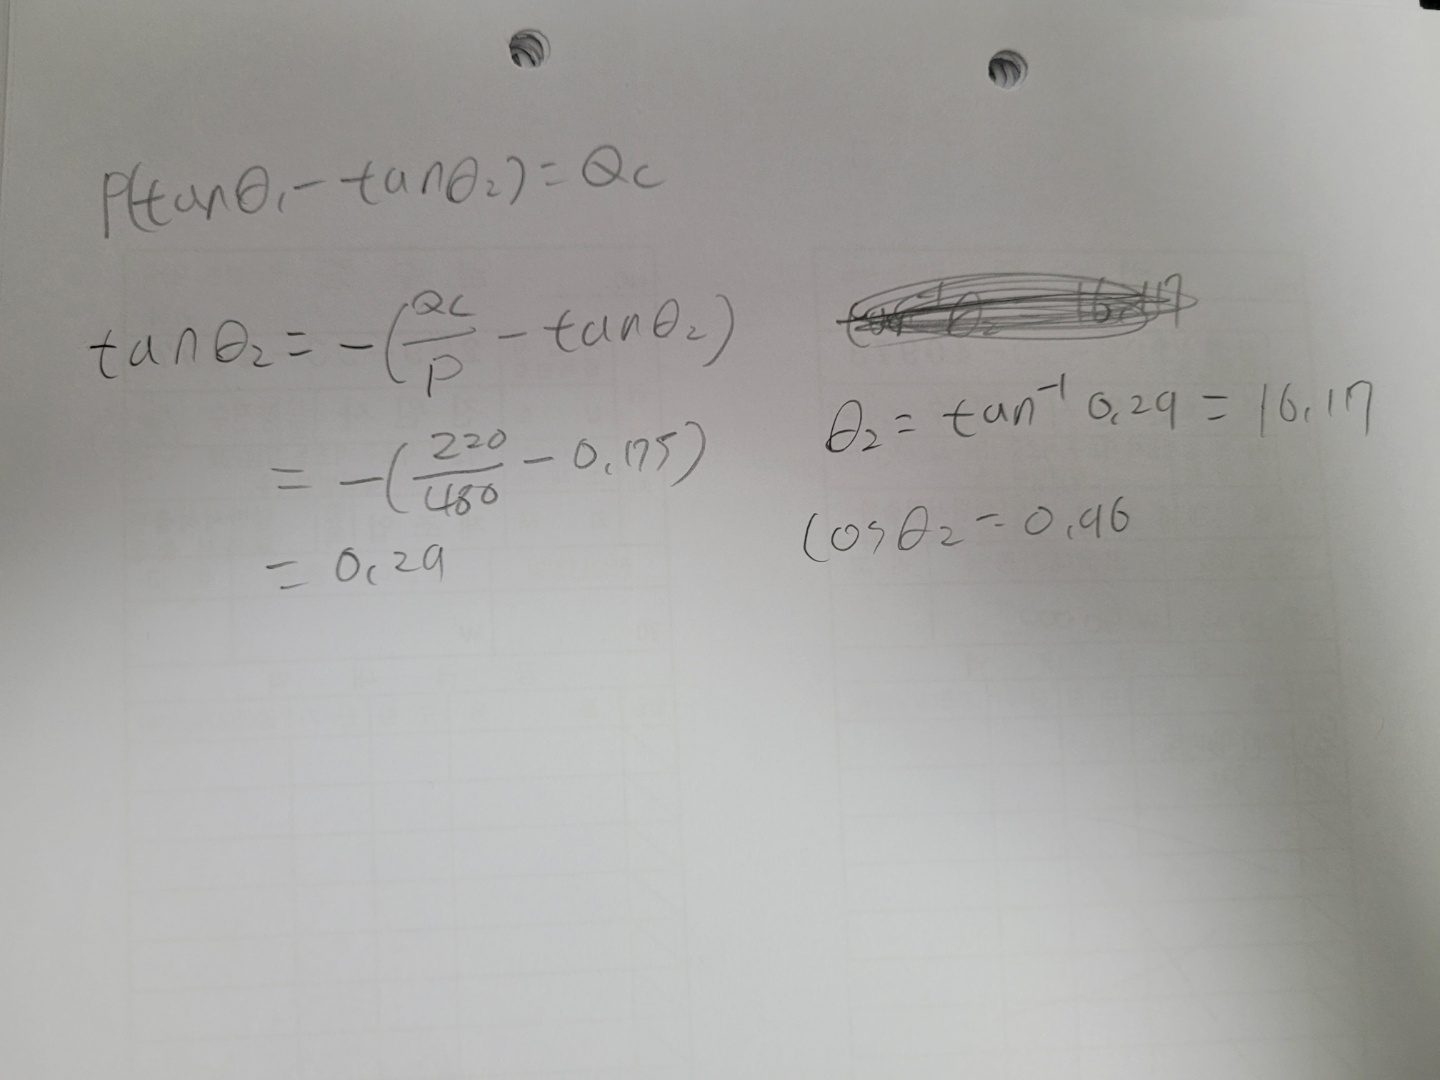 P(tanθ₁ - tanθ₂) = Qc
tanθ₂ = -(Qc/P - tanθ₂)
= -(220/480 - 0.75)
= 0.29
θ₂ = tan⁻¹ 0.29 = 16.17
cosθ₂ = 0.96